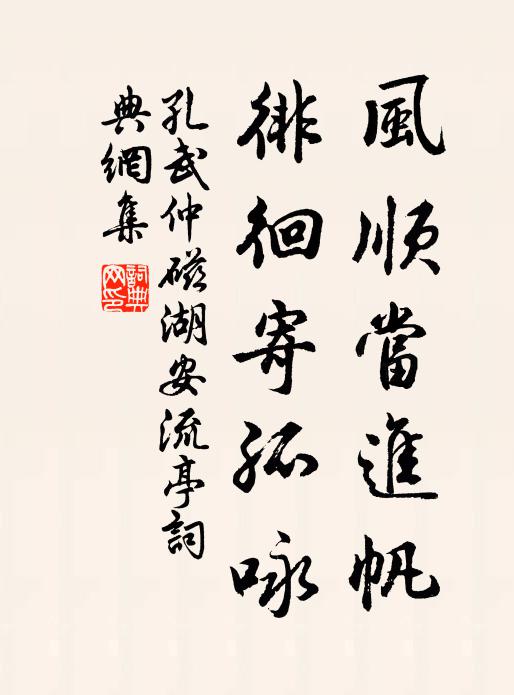 風順當進帆
徘徊寄孤咏
孔武仲磁湖安流亭詞
典網集
詞典网印